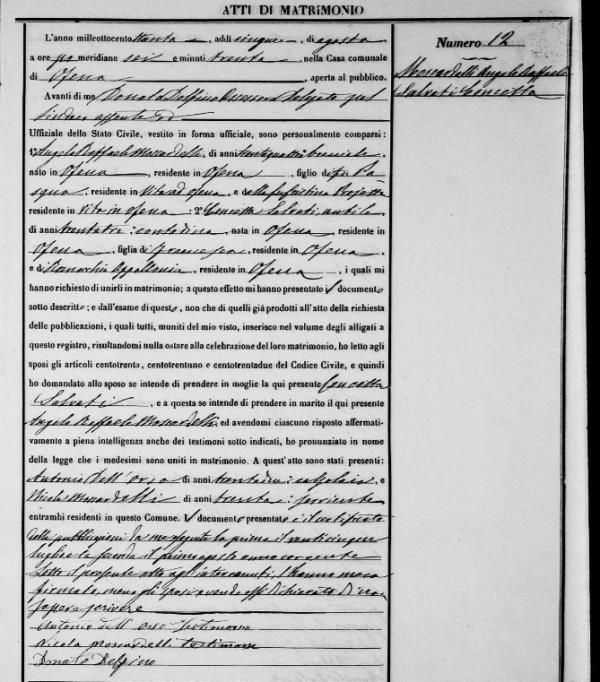 ATTI DI MATRIMONIO
Numero 12
Moscardelli Angelo Raffaele
Salvati Concetta
L'anno milleottocento ottanta, addi cinque di agosto
a ore po meridiane sei e minuti trenta, nella Casa comunale
di Ofena, aperta al pubblico.
Avanti di me Donato Delfino Assessore Delegato pel
Sindaco assente
Uffiziale dello Stato Civile, vestito in forma ufficiale, sono personalmente comparsi:
1° Angelo Raffaele Moscardelli, di anni trentaquattro bracciale,
nato in Ofena, residente in Ofena, figlio di fu Pa
squa, residente in vita ad Ofena, e della fu Cristina
residente in vita in Ofena: 2° Concetta Salvati, nubile
di anni trentatre: contadina, nata in Ofena residente in
Ofena, figlia di Francesco, residente in Ofena,
e di Appollonia, residente in Ofena, i quali mi
hanno richiesto di unirli in matrimonio; a questo effetto mi hanno presentato il documento
sotto descritto; e dall'esame di questo, non che di quelli già prodotti all'atto della richiesta
delle pubblicazioni, i quali tutti, muniti del mio visto, inserisco nel volume degli alligati a
questo registro, risultandomi nulla ostare alla celebrazione del loro matrimonio, ho letto agli
sposi gli articoli centotrenta, centotrentuno e centotrentadue del Codice Civile, e quindi
ho domandato allo sposo se intende di prendere in moglie la qui presente Concetta
Salvati, e a questa se intende di prendere in marito il qui presente
Angelo Raffaele Moscardelli; ed avendomi ciascuno risposto affermativamente
e a piena intelligenza anche dei testimoni sotto indicati, ho pronunziato in nome
della legge che i medesimi sono uniti in matrimonio. A quest'atto sono stati presenti:
Antonio Dell'Orso di anni calzolaio, e
Nicola Moscardelli di anni trenta: serviente
entrambi residenti in questo Comune. Il documento presentato è il certificato
delle pubblicazioni da me eseguite la prima il venticinque
luglio la seconda il primo agosto anno corrente
Letto il presente atto agl'intervenuti, l'hanno meco
firmato, meno gli sposi avendo essi dichiarato di non
sapere scrivere
Antonio dell'Orso testimone
Nicola Moscardelli testimone
Donato Delfino